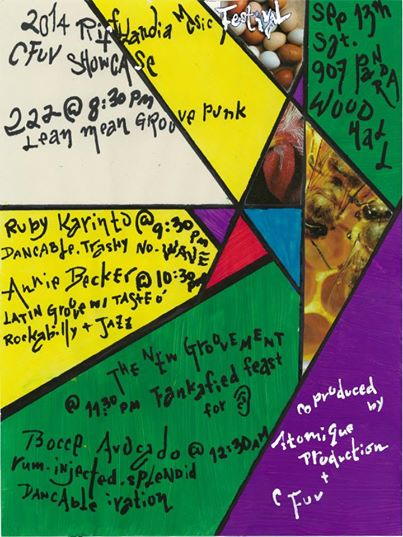 2014 Rifflandia Music Festival
CFUV + SHOWCASE
222 @ 8:30 PM
LEAN MEAN GROOVE PUNK
Sep 13th
Sat.
907 PANDORA
WOOD
HALL
Ruby Karinto @ 9:30 PM
DANCABLE. TRASHY NO-WAVE
Annie Becker @ 10:30 PM
LATIN GROOVE W/ TASTE O'
Rockabilly + JAZZ
THE NEW GROOVEMENT
@ 11:30 PM Fankafied feast
for
Bocce Avocado @ 12:30AM
rum. injected. splendid
DANCABLE iration
coproduced
by
Atomique
Production
+
CFUV